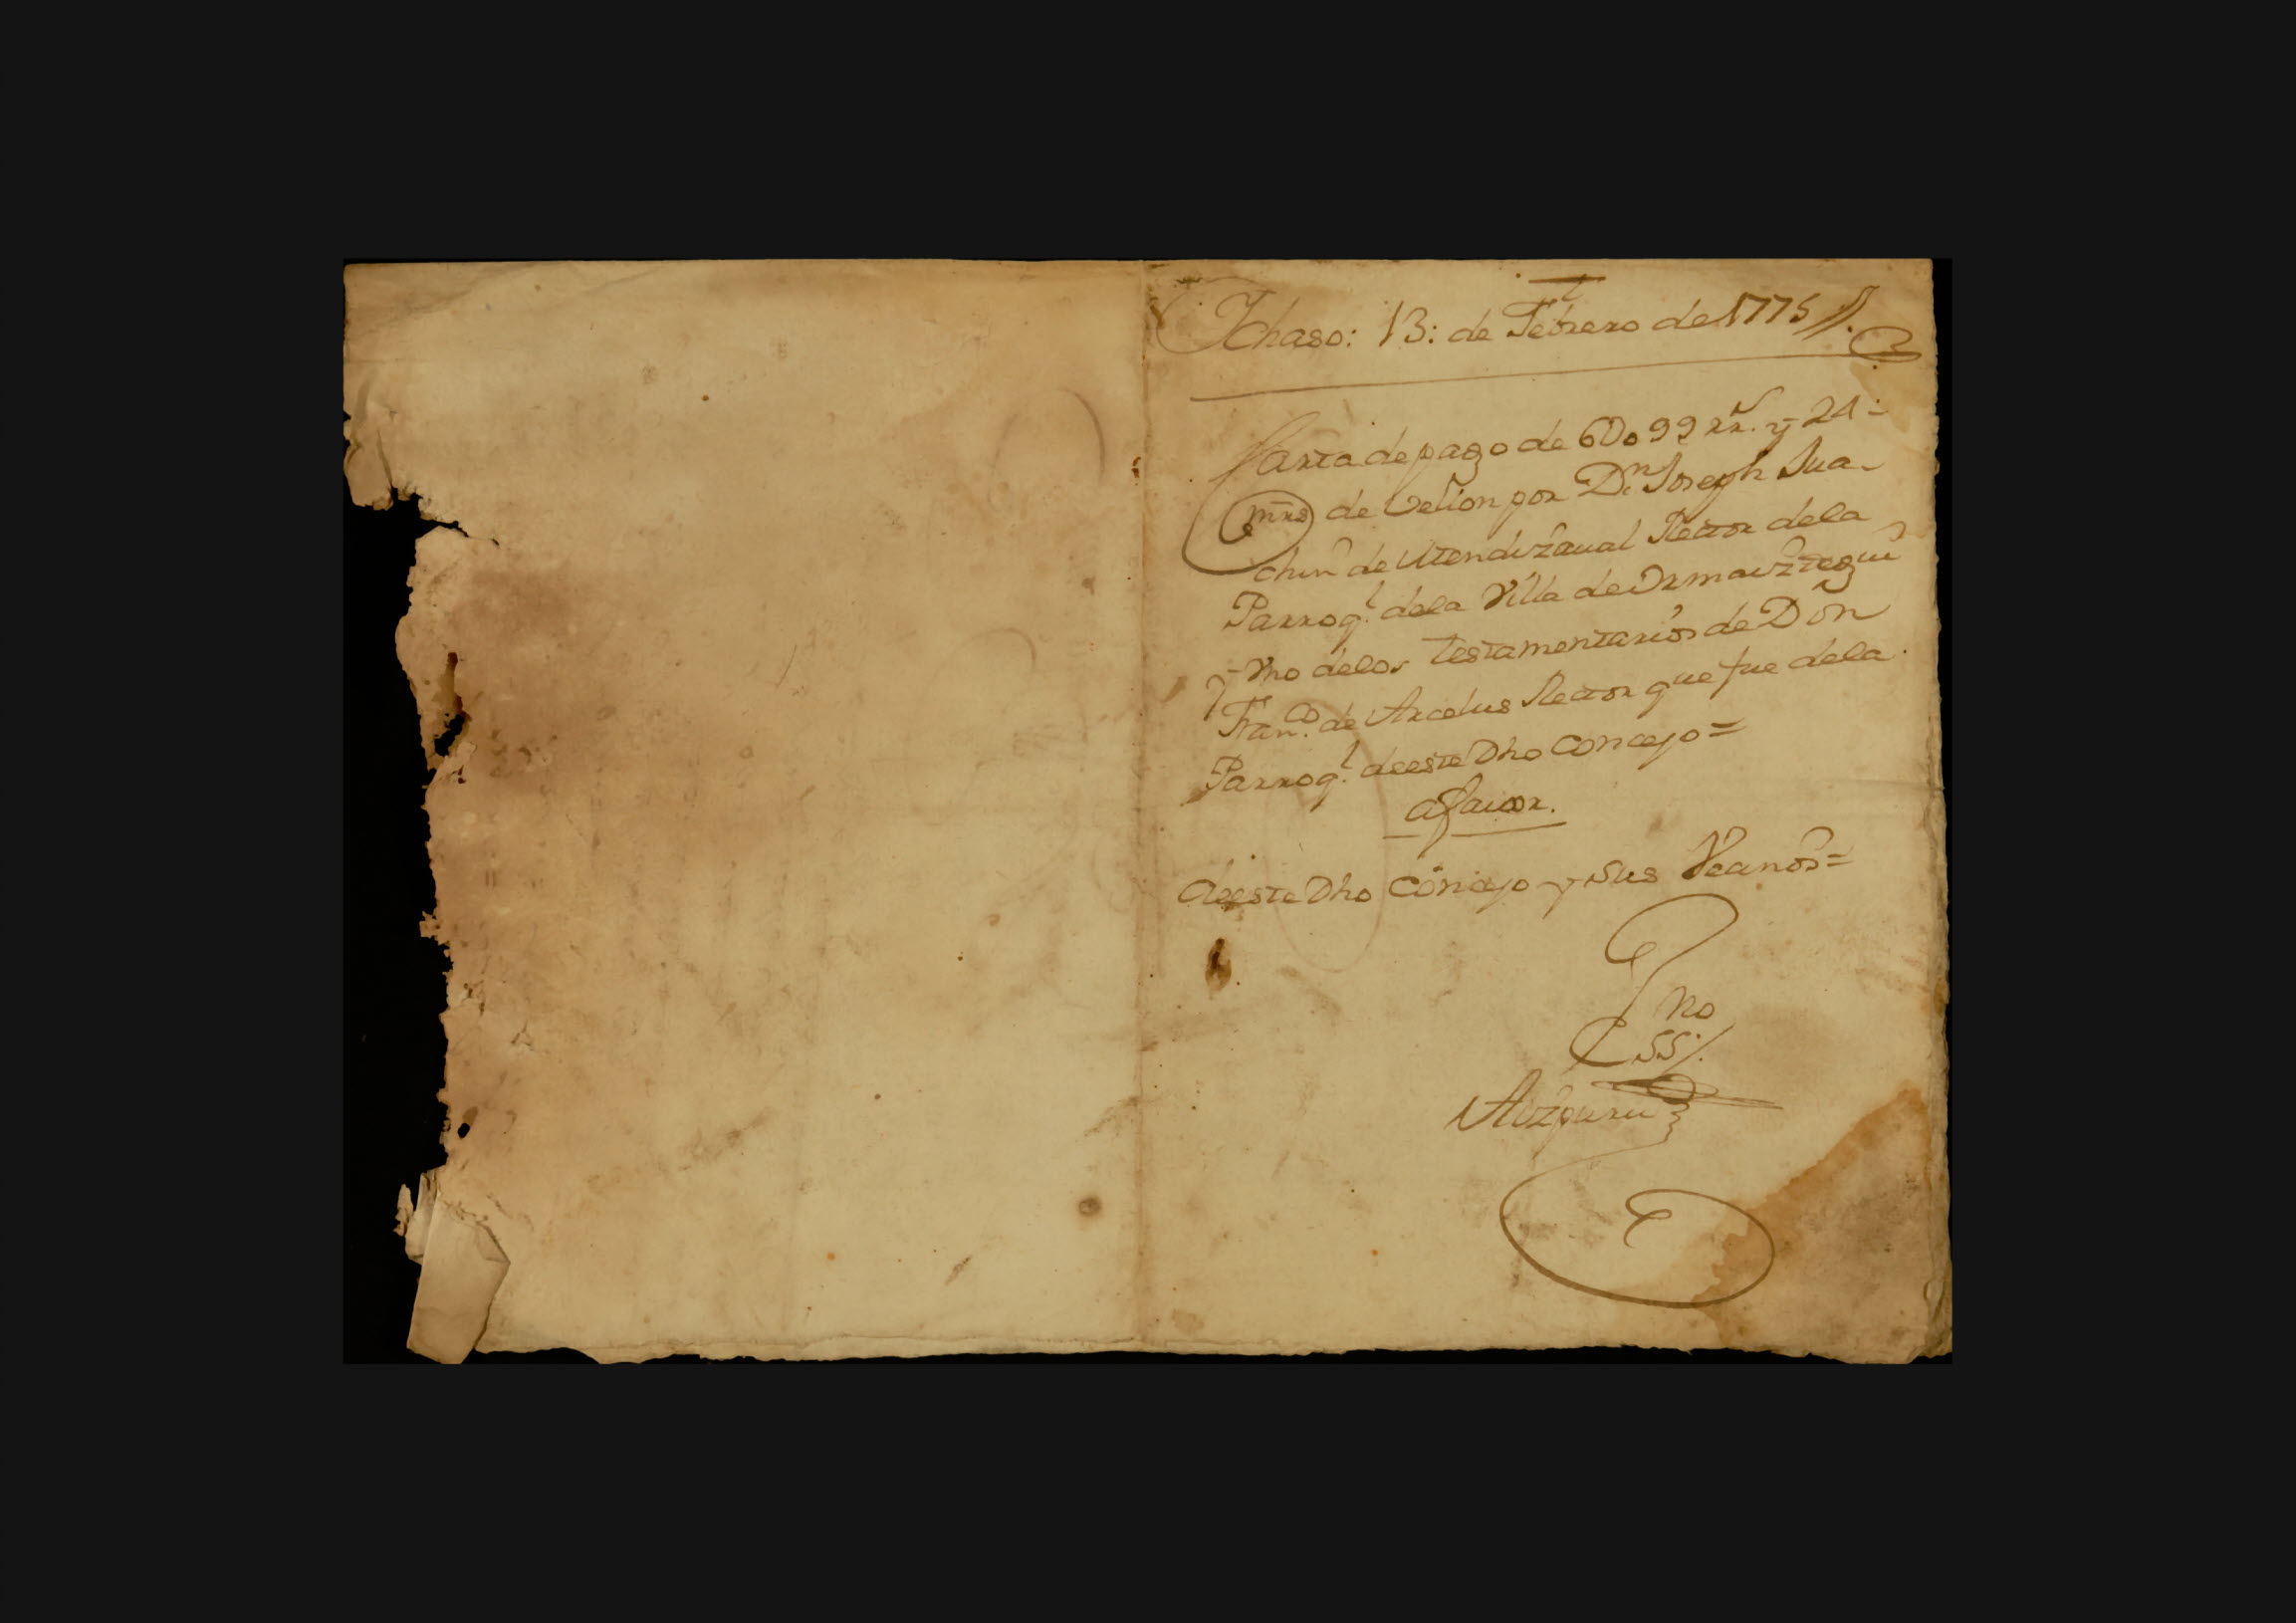 Ichaso: 13: de Febrero de 1775
Carta de pago de 6Do99 rr.s y 24:
mrs de Vellon por Dn. Joseph Jua-
chin de Atendizaual Rector dela
Parroq.l dela Villa de Ormaiztegui
y Vno delos testamentarios de Don
Fran.co de Arcelus Rector que fue dela
Parroq.l deeste Dho Concejo =
afauor.
deeste Dho Concejo y sus Vecinos =
Ess.no
Aizpuru